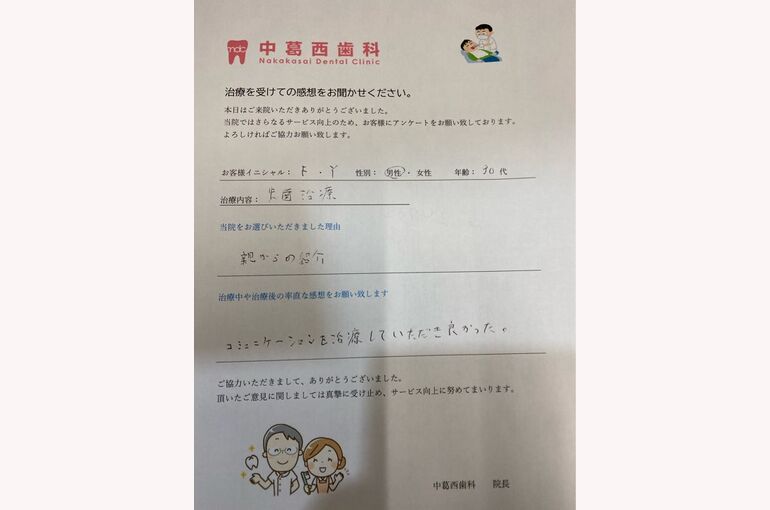 mdc 中葛西歯科
Nakakasai Dental Clinic
治療を受けての感想をお聞かせください。
本日はご来院いただきありがとうございました。
当院ではさらなるサービス向上のため、お客様にアンケートをお願い致しております。
よろしければご協力お願い致します。
お客様イニシャル： F ・ Y 性別： 男性 ・ 女性 年齢： 30 代
治療内容： 虫歯治療
当院をお選びいただきました理由
親からの紹介
治療中や治療後の率直な感想をお願い致します
コミュニケーションを治療していただき良かった。
ご協力いただきまして、ありがとうございました。
頂いたご意見に関しましては真摯に受け止め、サービス向上に努めてまいります。
中葛西歯科 院長